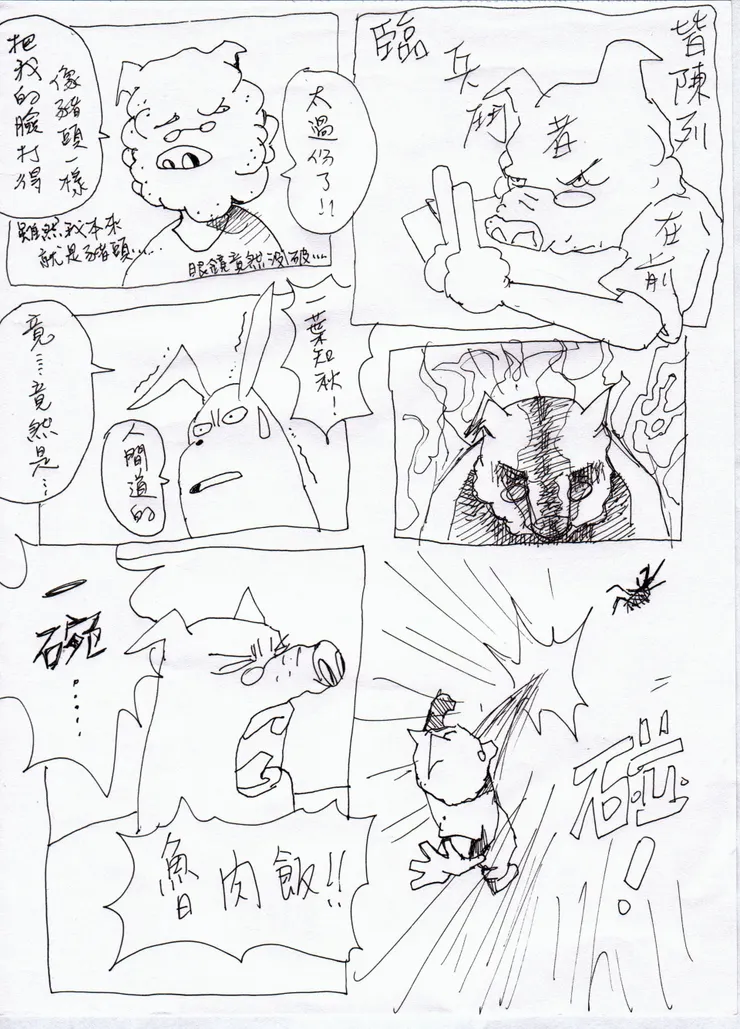 臨
兵
鬥
者
皆陳列
在前
太過份了!!
把我的臉打得
像豬頭一樣
雖然我本來
就是豬頭....
眼鏡竟然沒破...
一葉知秋!
人間道的
竟....竟然是...
一碗.....
魯肉飯!!
碰!